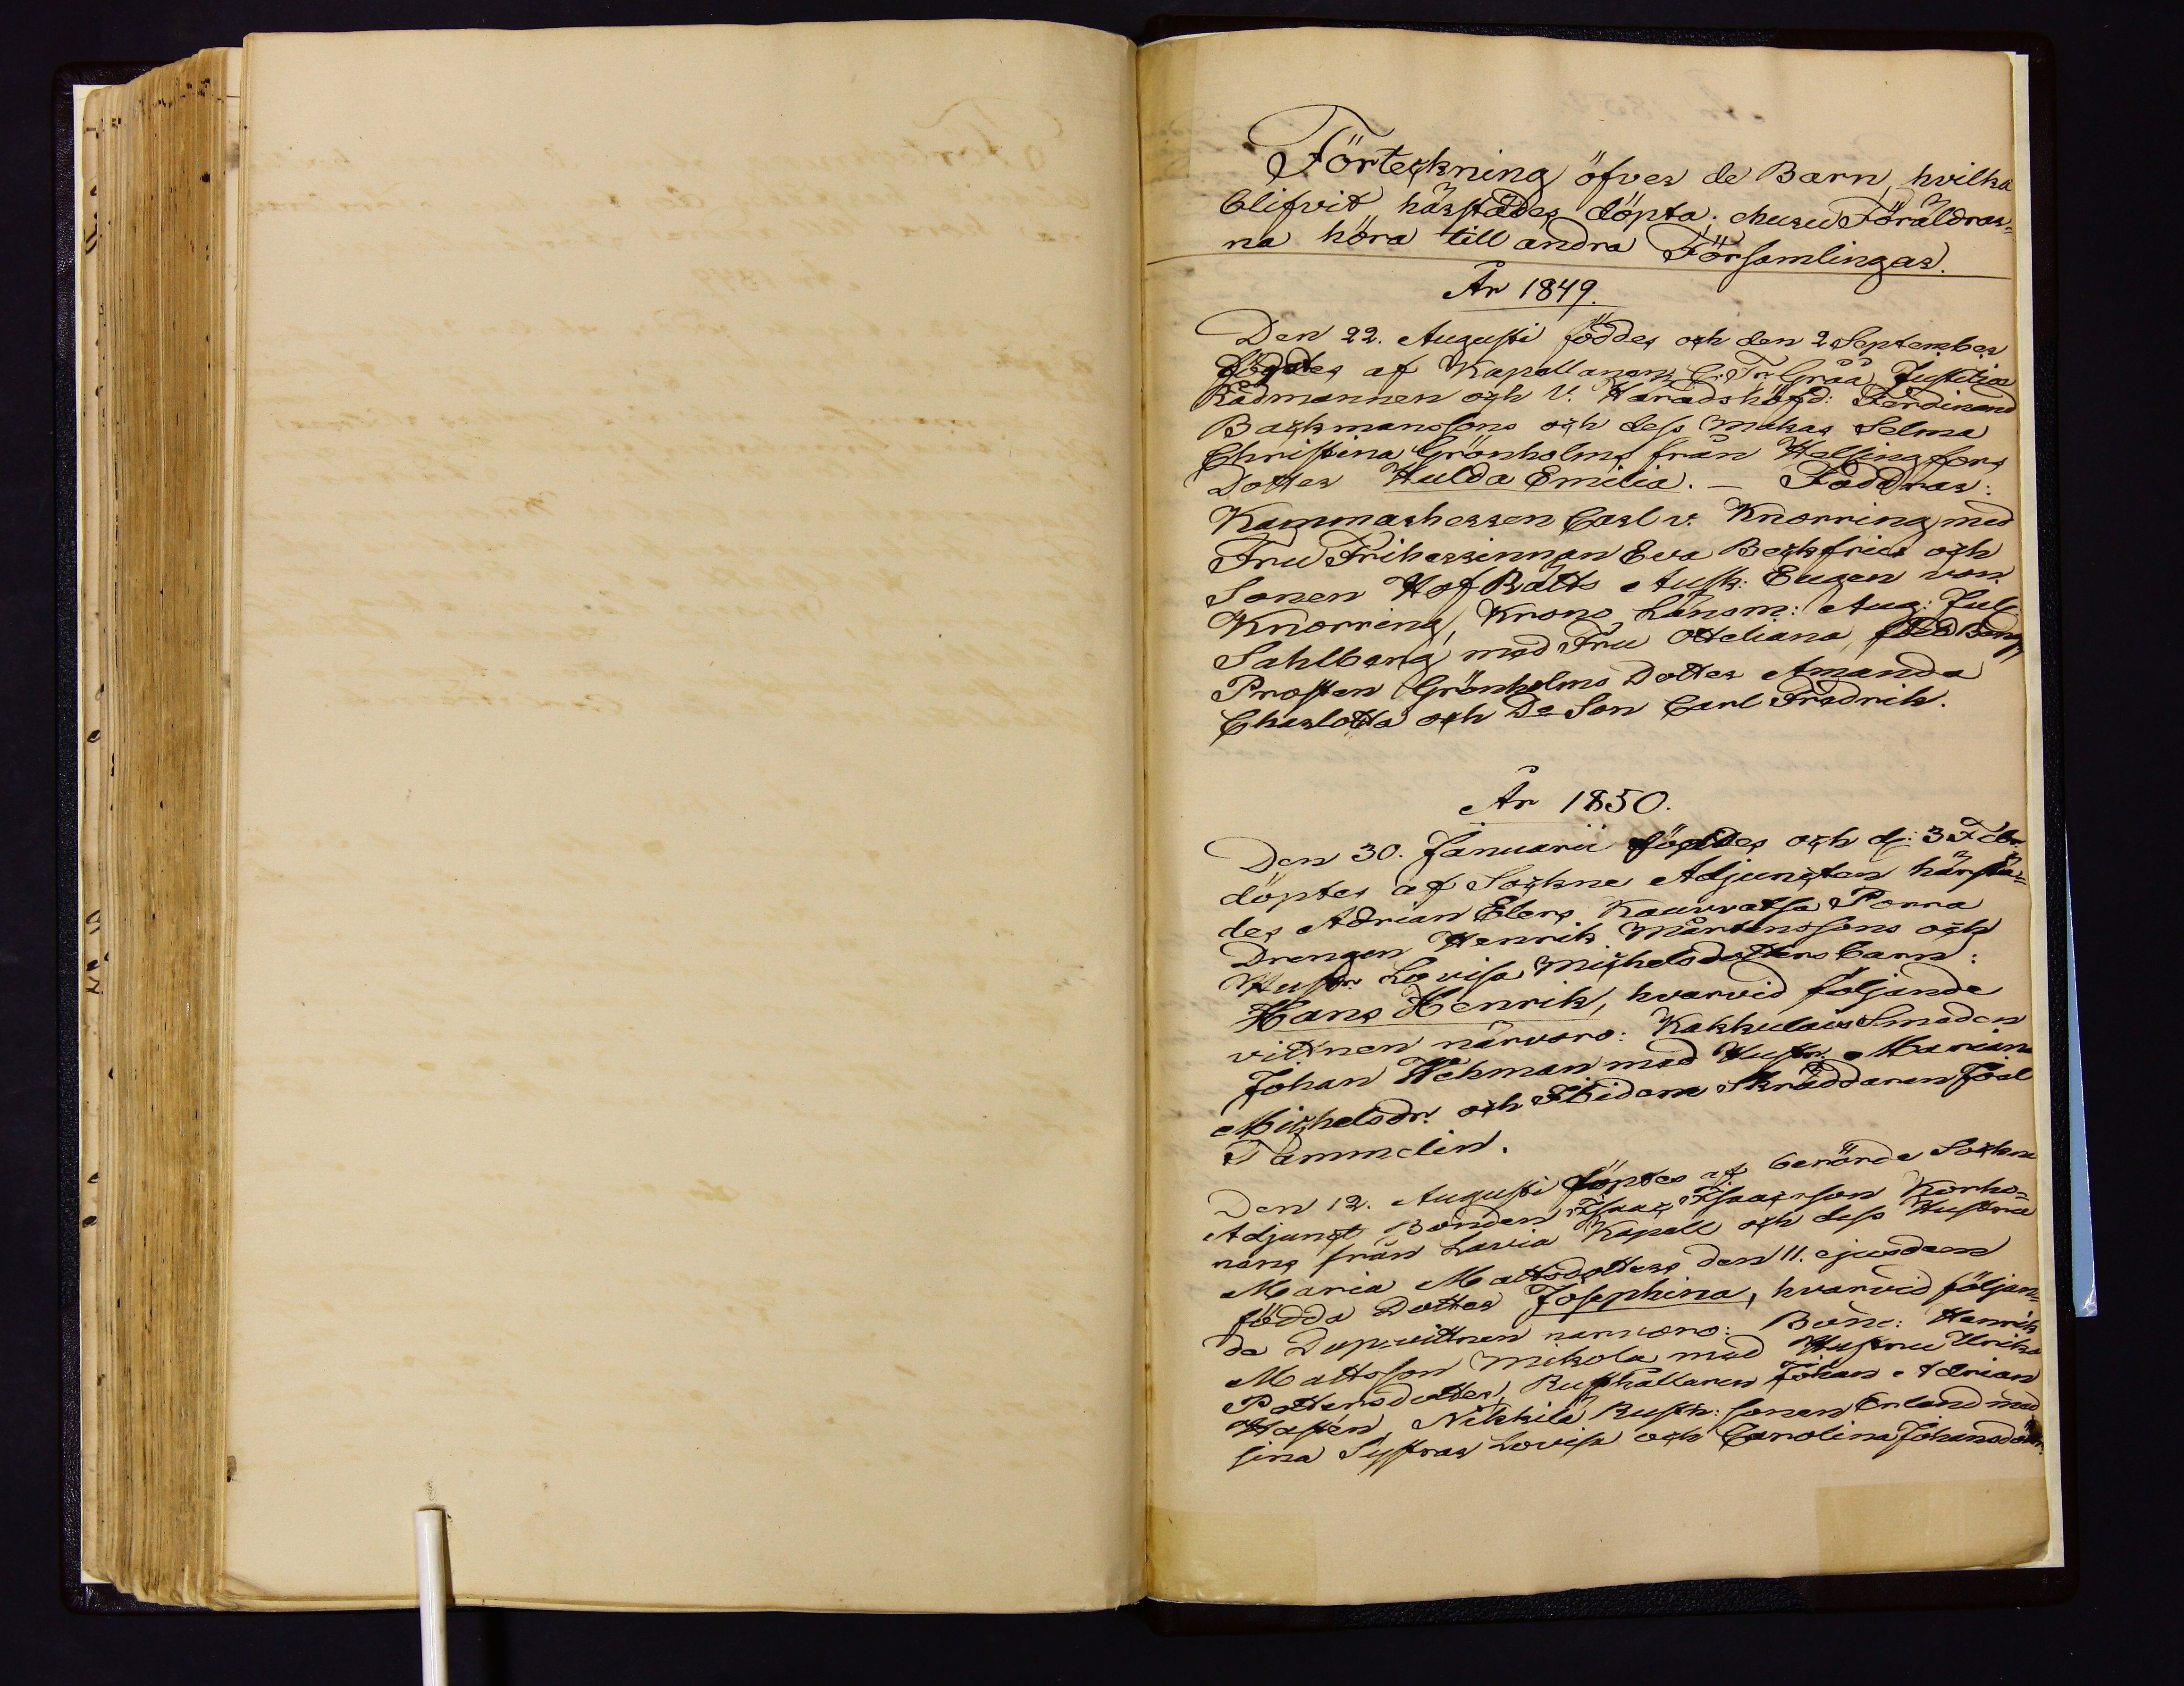 Förteckning öfver de Barn, hvilka
blifvit härstädes döpta, churu Föräldrar-
na höra till andra Församlingar.
År 1849.
Den 22. Augusti föddes och den 2 September
döptes af Kapellanen C. Fr. Gråå Justitiæ
Rådmannen och V. Häradshöfd: Ferdinand
Backmanssons och dess Makas Selma
Christina Grönholms från Helsingfors
Dotter Hulda Emilia. — Faddrar:
Kammarherren Carl v. Knorring med
Fru Friherrinnan Eva Beckfries och
Sonen HofRätts Ausk: Eugen von
Knorring, Krono Länsm: Aug: Jul:
Sahlberg med Fru Otteliana,
Prosten Grönholms Dotter Amanda
Charlotta och Do Son Carl Fredrik.
År 1850.
Den 30. Januarii föddes och d: 3 Febr.
döptes af Sockne Adjuncten härstä-
des Adrian Elers Kauvatsa Porra
Drengen Henrik Mårtenssons och
Hustr. Lovisa Michelsdotters barn:
Hans Henrik, hvarvid följande
vittnen närvoro: Kakkulais Smeden
Johan Wekman med Hustr. Maria
Michelsdr. och Ibidem Skräddaren Joel
Tammelin.
Den 12. Augusti döptes af berörde Sockne
Adjunct Bonden Isaac Isaacsson Korho-
nens från Lavia Kapell och dess Hustru
Maria Mattsdotters den 11. ejusdem
födda Dotter Josephina, hvarvid följan-
de Dopvittnen närvoro: Bond: Henrik
Mattsson Mikola med Hustru Ulrika
Pettersdotter, Rusthållaren Johan Adrian
Hasten, Nikkilä Rusth: sonen Erland med
sina Systrar Lovisa och Carolina Johansdöttr: